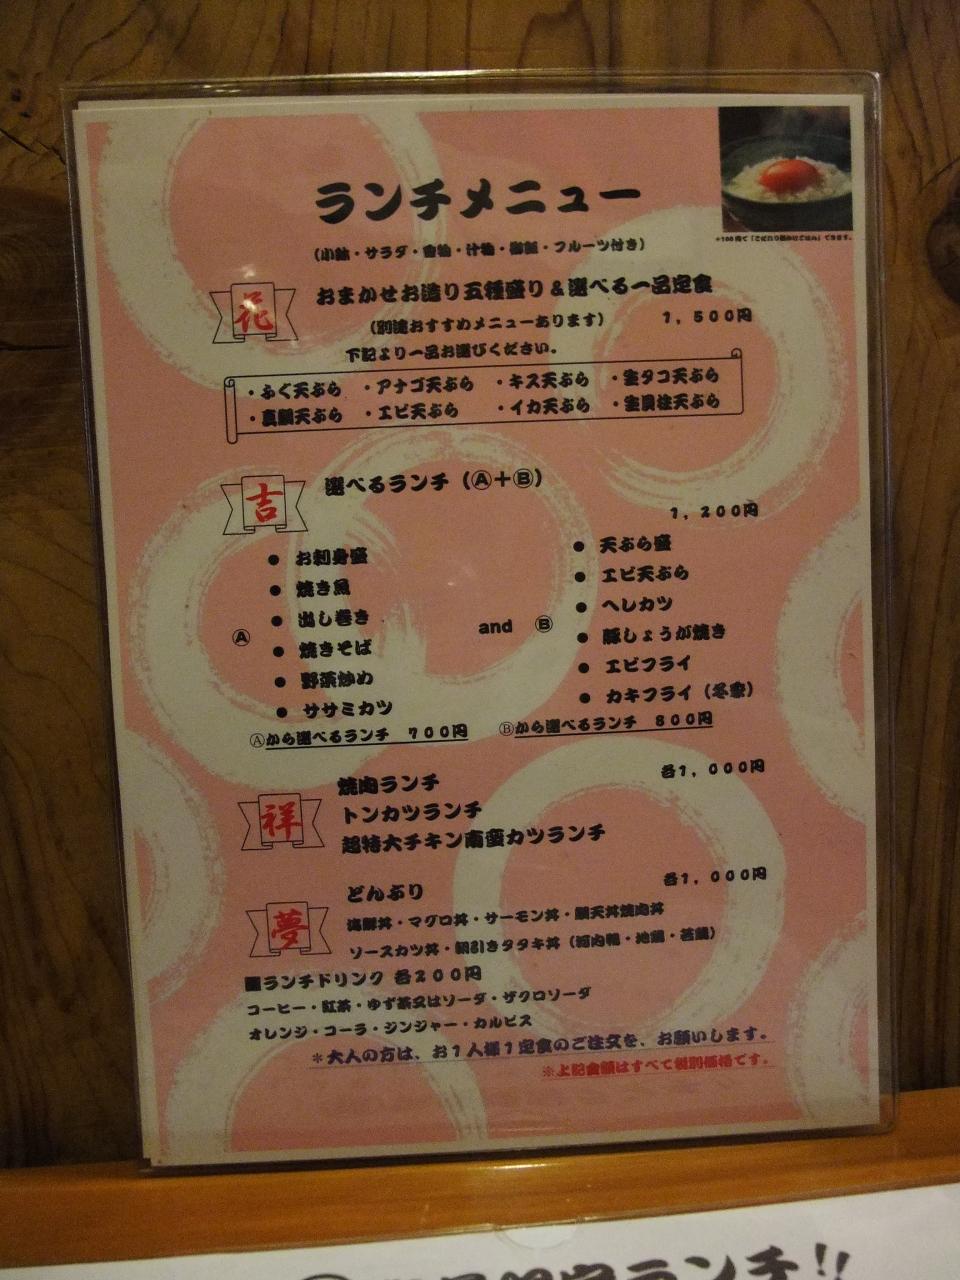 ランチメニュー
(小鉢・サラダ・香物・汁物・御飯・フルーツ付き)
+100円で「こだわり卵かけごはん」できます。
花
おまかせお造り五種盛り&選べる一品定食
(別途おすすめメニューあります) 1,500円
下記より一品お選びください。
・ふぐ天ぷら ・アナゴ天ぷら ・キス天ぷら ・生タコ天ぷら
・真鯛天ぷら ・エビ天ぷら ・イカ天ぷら ・生貝柱天ぷら
吉
選べるランチ(Ⓐ+Ⓑ)
1,200円
Ⓐ
● お刺身盛
● 焼き魚
● 出し巻き
● 焼きそば
● 野菜炒め
● ササミカツ
and Ⓑ
● 天ぷら盛
● エビ天ぷら
● ヘレカツ
● 豚しょうが焼き
● エビフライ
● カキフライ(冬季)
Ⓐから選べるランチ 700円 Ⓑから選べるランチ 800円
祥
焼肉ランチ 各1,000円
トンカツランチ
超特大チキン南蛮カツランチ
夢
どんぶり 各1,000円
海鮮丼・マグロ丼・サーモン丼・鯛天丼焼肉丼
ソースカツ丼・朝引きタタキ丼(河内鴨・地鶏・若鶏)
■ランチドリンク 各200円
コーヒー・紅茶・ゆず茶又はソーダ・ザクロソーダ
オレンジ・コーラ・ジンジャー・カルピス
*大人の方は、お1人様1定食のご注文を、お願いします。
※上記金額はすべて税別価格です。
ランチ!!